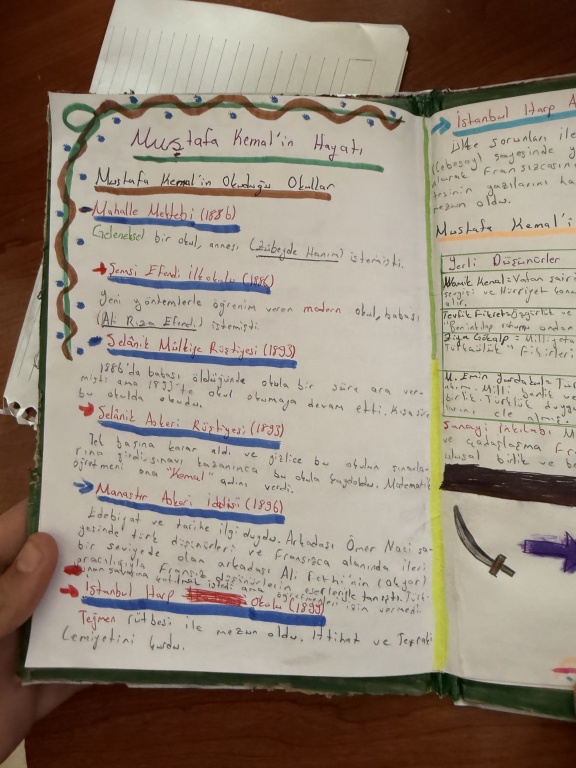 Mustafa Kemal'in Hayatı
Mustafa Kemal'in Okuduğu Okullar
Mahalle Mektebi (1886)
Geleneksel bir okul, annesi (Zübeyde Hanım) istemişti.
Şemsi Efendi İlkokulu (1886)
Yeni yöntemlerle öğrenim veren modern okul, babası
(Ali Rıza Efendi) istemişti.
Selânik Mülkiye Rüştiyesi (1893)
1886'da babası öldüğünde okula bir süre ara ver-
mişti ama 1893'te okul okumaya devam etti. Kısa süre
bu okulda okudu.
Selânik Askeri Rüştiyesi (1893)
Tek başına karar aldı ve gizlice bu okulun sınavla-
rına girdi. sınavı kazanınca bu okula kaydoldu. Matematik
öğretmeni ona "Kemal" adını verdi.
Manastır Askeri İdadisi (1896)
Edebiyat ve tarihe ilgi duydu. Arkadaşı Ömer Naci sa-
yesinde türk düşünürleri ve Fransızca alanında ileri
bir seviyede olan arkadaşı Ali Fethi'nin (okyar)
aracılığıyla Fransız düşünürlerin eserleriyle tanıştı.
katılmak istedi ama öğretmenleri izin vermedi.
İstanbul Harp Okulu (1899)
Teğmen rütbesi ile mezun oldu. İttihat ve Terakki
Cemiyetini kurdu.
İstanbul Harp A
Ülke sorunları ile
(Cebesoy) sayesinde y
alarak Fransızcasın
mezun oldu.
Mustafa Kemal'i
Yerli Düşünürler
Namık Kemal = Vatan şairi
sevgisi ve Hürriyet
alır.
Tevfik Fikret = Özgürlük ve
Ziya Gökalp = Milliyet
Türkçülük" Fikirleri
M. Emin Yurdakul = Tür
Milli benlik ve
birlik. Türklük duygu
larını ele almış.
Sanayi İnkılabı M
ve çağdaşlaşma Fra
ulusal birlik ve b